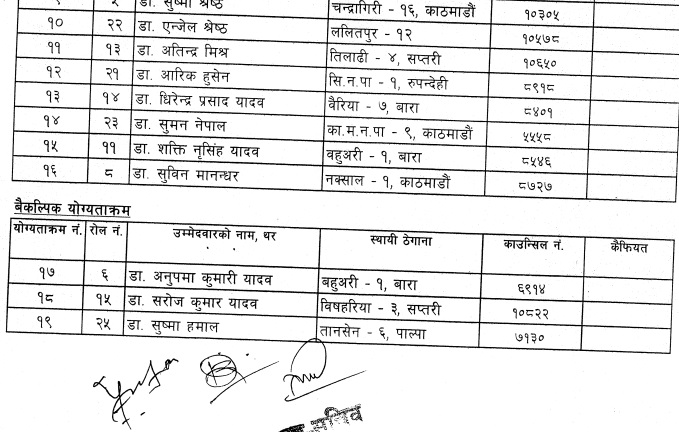 डा. सुष्मा श्रेष्ठ चन्द्रागिरी - १६, काठमाडौं १०३०५
१० २२ डा. एन्जेल श्रेष्ठ ललितपुर - १२ १०५७८
११ १३ डा. अतिन्द्र मिश्र तिलाढी - ४, सप्तरी १०६५०
१२ २१ डा. आरिक हुसेन सि.न.पा - १, रुपन्देही ८९१८
१३ १४ डा. धिरेन्द्र प्रसाद यादव वैरिया - ७, बारा ८४०१
१४ २३ डा. सुमन नेपाल का.म.न.पा - ९, काठमाडौं ५५५८
१५ ११ डा. शक्ति नृसिंह यादव वहुअरी - १, बारा ८५४६
१६ ८ डा. सुविन मानन्धर नक्साल - १, काठमाडौं ८७२७
बैकल्पिक योग्यताक्रम
योग्यताक्रम नं. रोल नं. उम्मेदवारको नाम, थर स्थायी ठेगाना काउन्सिल नं. कैफियत
१७ ६ डा. अनुपमा कुमारी यादव बहुअरी - १, बारा ६९१४
१८ १५ डा. सरोज कुमार यादव विषहरिया - ३, सप्तरी १०८२२
१९ २५ डा. सुष्मा हमाल तानसेन - ६, पाल्पा ७१३०
सचिव